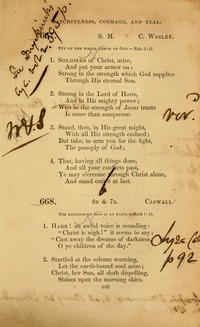 WATCHFULNESS, COURAGE, AND ZEAL.
S. M. C. WESLEY.
PUT ON THE WHOLE ARMOR OF GOD.—Eph. 6:11.
1. SOLDIERS of Christ, arise,
And put your armor on;
Strong in the strength which God supplies
Through His eternal Son.
2. Strong in the Lord of Hosts,
And in His mighty power;
Who in the strength of Jesus trusts
Is more than conqueror.
3. Stand, then, in His great might,
With all His strength endued;
But take, to arm you for the fight,
The panoply of God;
4. That, having all things done,
And all your conflicts past,
Ye may o'ercome through Christ alone,
And stand entire at last.
668. 8s & 7s. CASWALL.
THE KINGDOM OF GOD IS AT HAND.—Mark 1:15.
1. HARK! an awful voice is sounding:
"Christ is nigh!" it seems to say;
"Cast away the dreams of darkness,
O ye children of the day."
2. Startled at the solemn warning,
Let the earth-bound soul arise;
Christ, her Sun, all sloth dispelling,
Shines upon the morning skies.
p 92